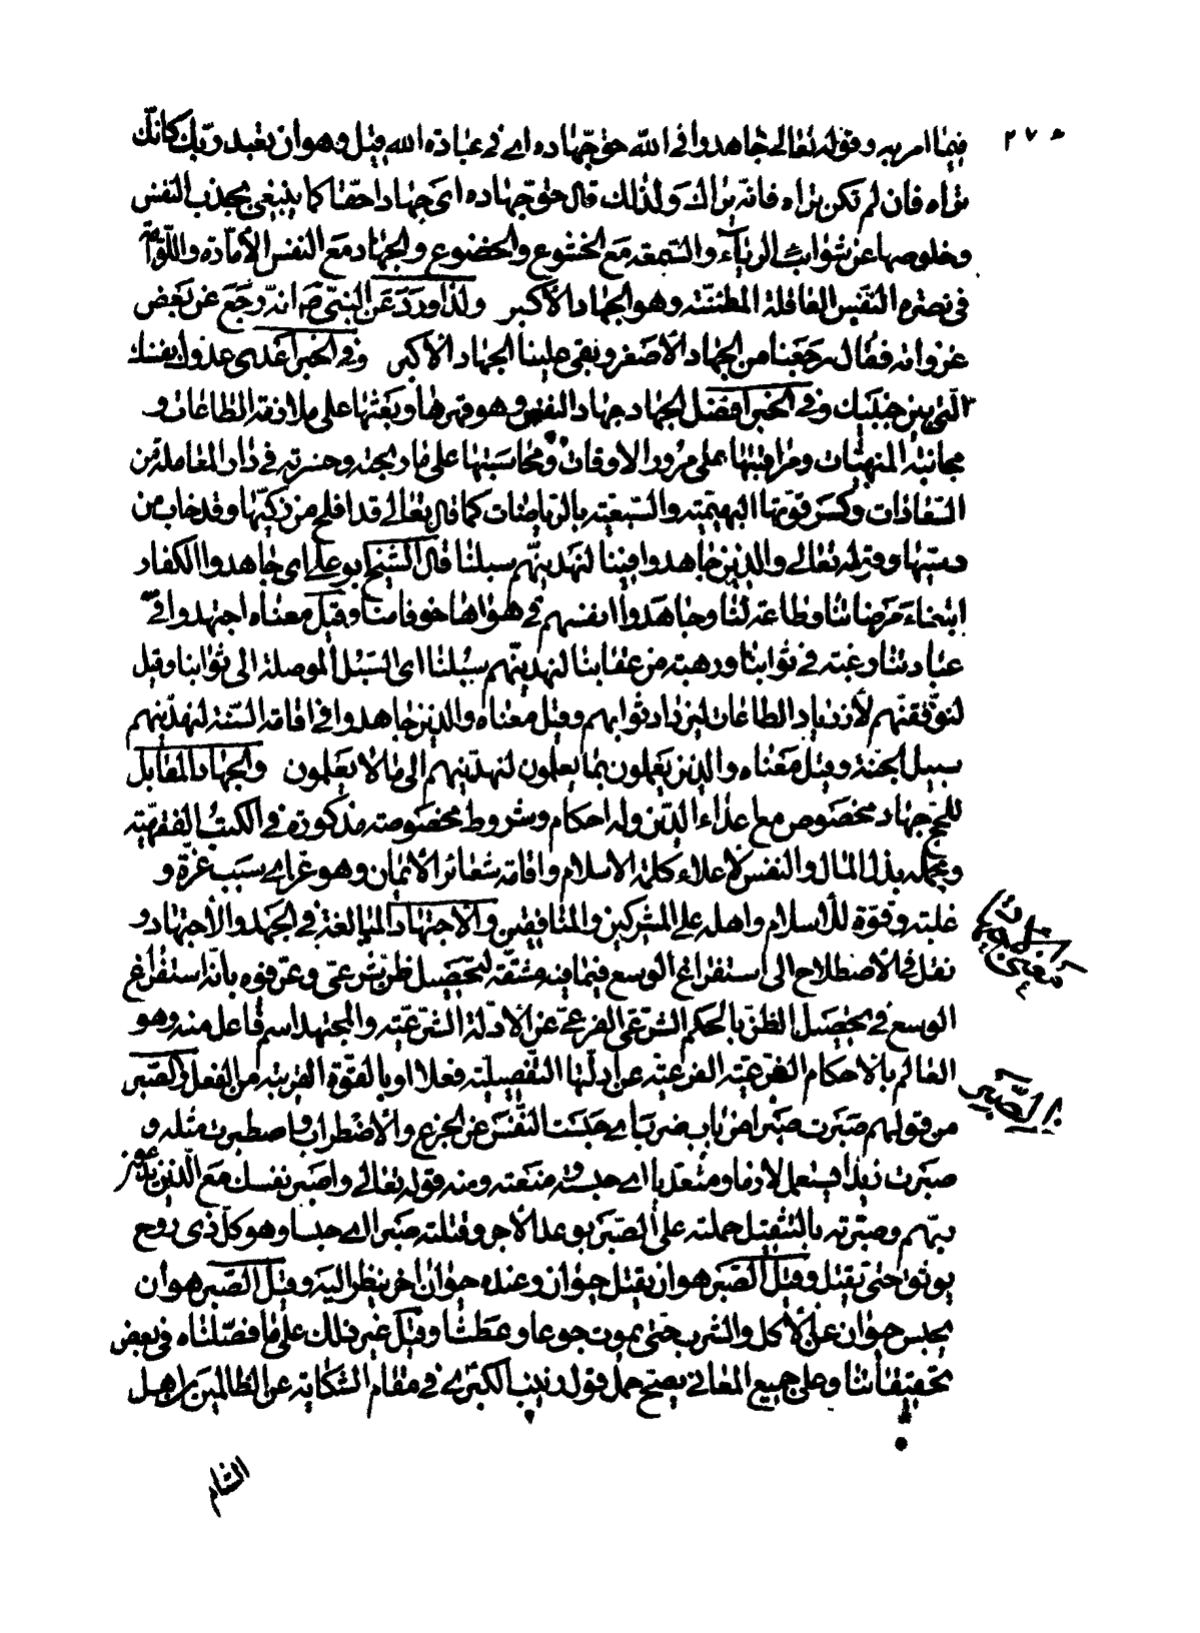 ٢٧٨
فيما امر به وقوله تعالى جاهدوا فى الله حق جهاده اى فى عبادة الله قيل وهو ان تعبد ربك كانك
تراه فان لم تكن تراه فانه يراك ولذلك قال حق جهاده اى جهادا حقا كما ينبغى بجذب النفس
وخلوصها عن شوائب الرياء والسمعة مع الخشوع والخضوع والجهاد مع النفس الأمارة واللوامة
فى نصرة النفس العاقلة المطمئنة وهو الجهاد الأكبر ولذا ورد عن النبى ص انه رجع عن بعض
غزواته فقال رجعنا من الجهاد الأصغر وبقى علينا الجهاد الاكبر وفى الخبر اعدى عدوك نفسك
التى بين جنبيك وفى الخبر افضل الجهاد جهاد النفس وهو قهرها وبعثها على ملازمة الطاعات و
مجانبة المنهيات ومراقبتها على مرور الاوقات ومحاسبتها على ما ربحته وخسرته فى دار المعاملة من
السعادات وكسر قوتها البهيمية والسبعية بالرياضات كما قال تعالى قد افلح من زكيها وقد خاب من
دسيها وقوله تعالى والذين جاهدوا فينا لنهدينهم سبلنا قال الشيخ ابو على اى جاهدوا الكفار
ابتغاء مرضاتنا وطاعة لنا وجاهدوا انفسهم فى هواها خوفا منا وقيل معناه اجتهدوا فى
عبادتنا رغبة فى ثوابنا ورهبة من عقابنا لنهدينهم سبلنا اى السبل الموصلة الى ثوابنا وقيل
لنوفقنهم لأزدياد الطاعات ليزداد ثوابهم وقيل معناه والذين جاهدوا فى اقامة السنة لنهدينهم
سبيل الجنة وقيل معناه والذين يعملون بما يعلمون لنهدينهم الى ما لا يعلمون والجهاد المقابل
للحج جهاد مخصوص مع اعداء الدين وله احكام وشروط مخصوصة مذكورة فى الكتب الفقهية
ويجمله بذل المال والنفس لأعلاء كلمة الاسلام واقامة شعائر الأيمان وهو عز اى سبب عزة و
غلبة وقوة للأسلام واهله على المشركين والمنافقين والاجتهاد المبالغة فى الجهد والأجتهاد و
نقل فى الأصطلاح الى استفراغ الوسع فيما فيه مشقة لتحصيل ظن شرعى وعرفوه بانه استفراغ
الوسع فى تحصيل الظن بالحكم الشرعى الفرعى عن الادلة الشرعية والمجتهد اسم فاعل منه وهو
العالم بالاحكام الشرعية الفرعية عن ادلتها التفصيلية فعلا او بالقوة القريبة من الفعل والصبر
من قولهم صبرت صبرا من باب ضرب اى حبست النفس عن الجزع والأضطراب واصطبرت مثله و
صبرت زيدا يستعمل لازما ومتعديا اى حبسته ومنعته ومنه قوله تعالى واصبر نفسك مع الذين يدعون
ربهم وصبرته بالتثقيل حملته على الصبر بوعد الأجر وقتلته صبرا اى حبسا وهو كل ذى روح
يوثق حتى يقتل وقيل الصبر هو ان يقتل حيوان وعنده حيوان اخر ينظر اليه وقيل الصبر هو ان
يحبس حيوان عن الأكل والشرب حتى يموت جوعا وعطشا وقيل غير ذلك على ما فصلناه فى بعض
تحقيقاتنا وعلى جميع المعانى يصح حمل قول زينب الكبرى فى مقام الشكاية عن الظالمين يا اهل
الشام
معنى
الصبر